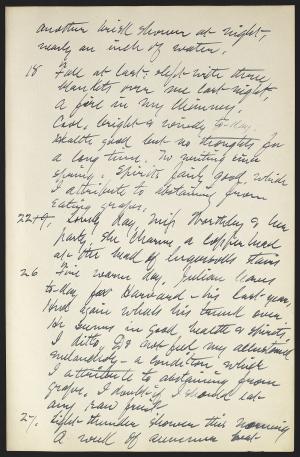 another brisk shower at night,
nearly an inch of water.
18 Fall at last. slept with three
blankets over me last night,
A fire in my chimney.
Cool, bright & windy to-day.
Health good but no thoughts for
a long time. No writing since
spring. Spirits fairly good, which
I attribute to abstaining from
eating grapes.
22 Lovely day, Miss Worthley & her
party, she charms a copperhead
at the head of
26 Fine warm day. Julian leaves
to-day for Harvard - his last year,
Hud again wheels his trunk over.
He seems in good health & spirits,
I ditto, Do not feel my accustomed
melancholy - a condition which
I attribute to abstaining from
grapes. I doubt if I should eat
any raw fruit.
27. Light thunder shower this morning
A week of summer heat